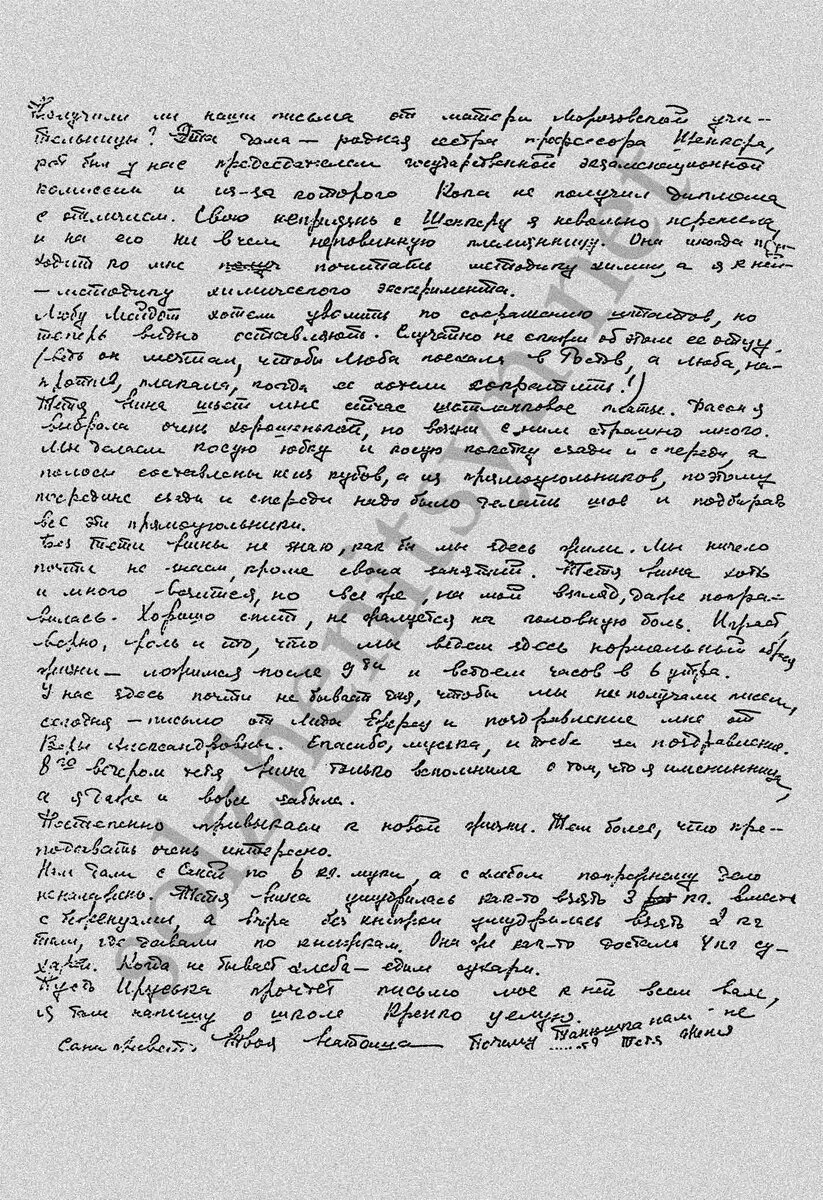 Получили ли наши письма от матери Морозовской учи-
тельницы? Эта дама — родная сестра профессора Шенкера,
был у нас председателем государственной экзаменационной
комиссии и из-за которого Кока не получил диплома
с отличием. Свою неприязнь с Шенкеру я невольно перенесла,
и на его ни в чем неповинную племянницу. Она иногда
ходит ко мне почитать методику химии, а я к ней
— методику химического эксперимента.
Любу Мейдот хотели уволить по сокращению штатов, но
теперь видно оставляют. Случайно не скажи об этом ее отцу.
(ведь он мечтал, чтобы Люба поехала в Ростов, а Люба, на-
против, плакала, когда ее хотели сократить!)
Тетя Нина шьет мне сейчас шотландковое платье. Фасон я
выбрала очень хорошенький, но возни с ним страшно много.
Мы делаем косую юбку и косую кокетку сзади и спереди, а
полосы составлены не из кубов, а из прямоугольников, поэтому
посредине сзади и спереди надо было делать шов и подбирать
все эти прямоугольники.
Без тети Нины не знаю, как бы мы здесь жили. Мы ничего
почти не знаем, кроме своих занятий. Тетя Нина хоть
и много возится, но все же, на мой взгляд, даже попра-
вилась. Хорошо спит, не жалуется на головную боль. Играет,
верно, роль и то, что мы ведем здесь нормальный образ
жизни — ложимся после 9 ти и встаем часов в 6 утра.
У нас здесь почти не бывает дня, чтобы мы не получали писем,
сегодня — письмо от Лиды Ежерец и поздравление мне от
Веры Александровны. Спасибо, муська, и тебе за поздравление.
8 го вечером тетя Нина только вспомнила о том, что я именинница,
а я даже и вовсе забыла.
Постепенно привыкаем к новой жизни. Тем более, что пре-
подавать очень интересно.
Нам дали с Саней по 6 кг. муки, а с хлебом попрежнему дело
неналажено. Тетя Нина умудрилась как-то взять 3 кг. вместе
с, а вчера без книжки умудрилась взять 2 кг
там, где давали по книжкам. Она же как-то достала 4 кг су-
харей. Когда не бывает хлеба — едим сухари.
Пусть Ируська прочтет письмо мое к ней всем вам,
я там напишу о школе. Крепко целую.
Саня. Твоя Натоша Почему Танюшка нам не
тетя Женя